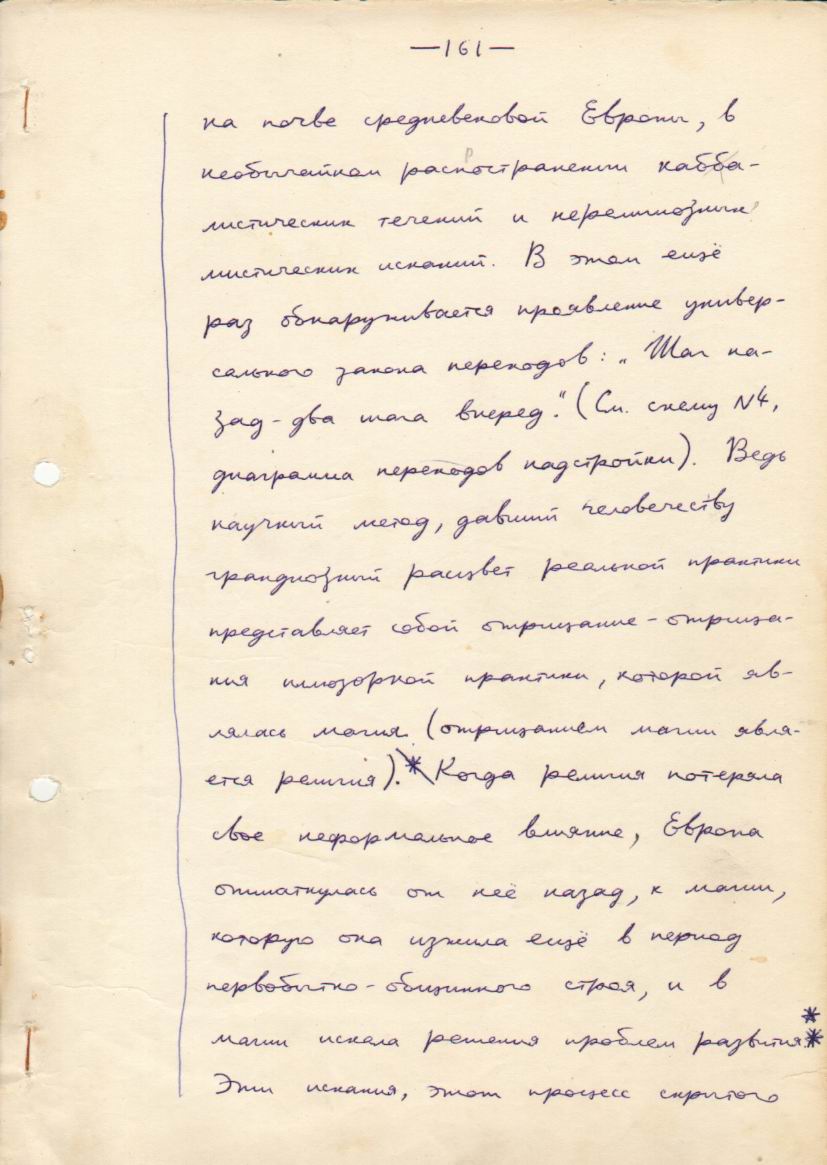 —161—
на почве средневековой Европы, в
необычайном распространении кабба-
листических течений и нерелигиозных
мистических исканий. В этом ещё
раз обнаруживается проявление универ-
сального закона переходов: „Шаг на-
зад - два шага вперед." (См. схему №4,
диаграмма переходов надстройки). Ведь
научный метод, давший человечеству
грандиозный расцвет реальной практики
представляет собой отрицание-отрица-
ния иллюзорной практики, которой яв-
лялась магия (отрицанием магии явля-
ется религия).* Когда религия потеряла
свое неформальное влияние, Европа
отшатнулась от неё назад, к магии,
которую она изжила ещё в период
первобытно-общинного строя, и в
магии искала решения проблем развития.**
Эти искания, этот процесс скрытого